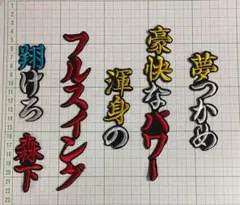 夢つかめ
豪快なパワー
渾身の
フルスイング
翔けろ
森下